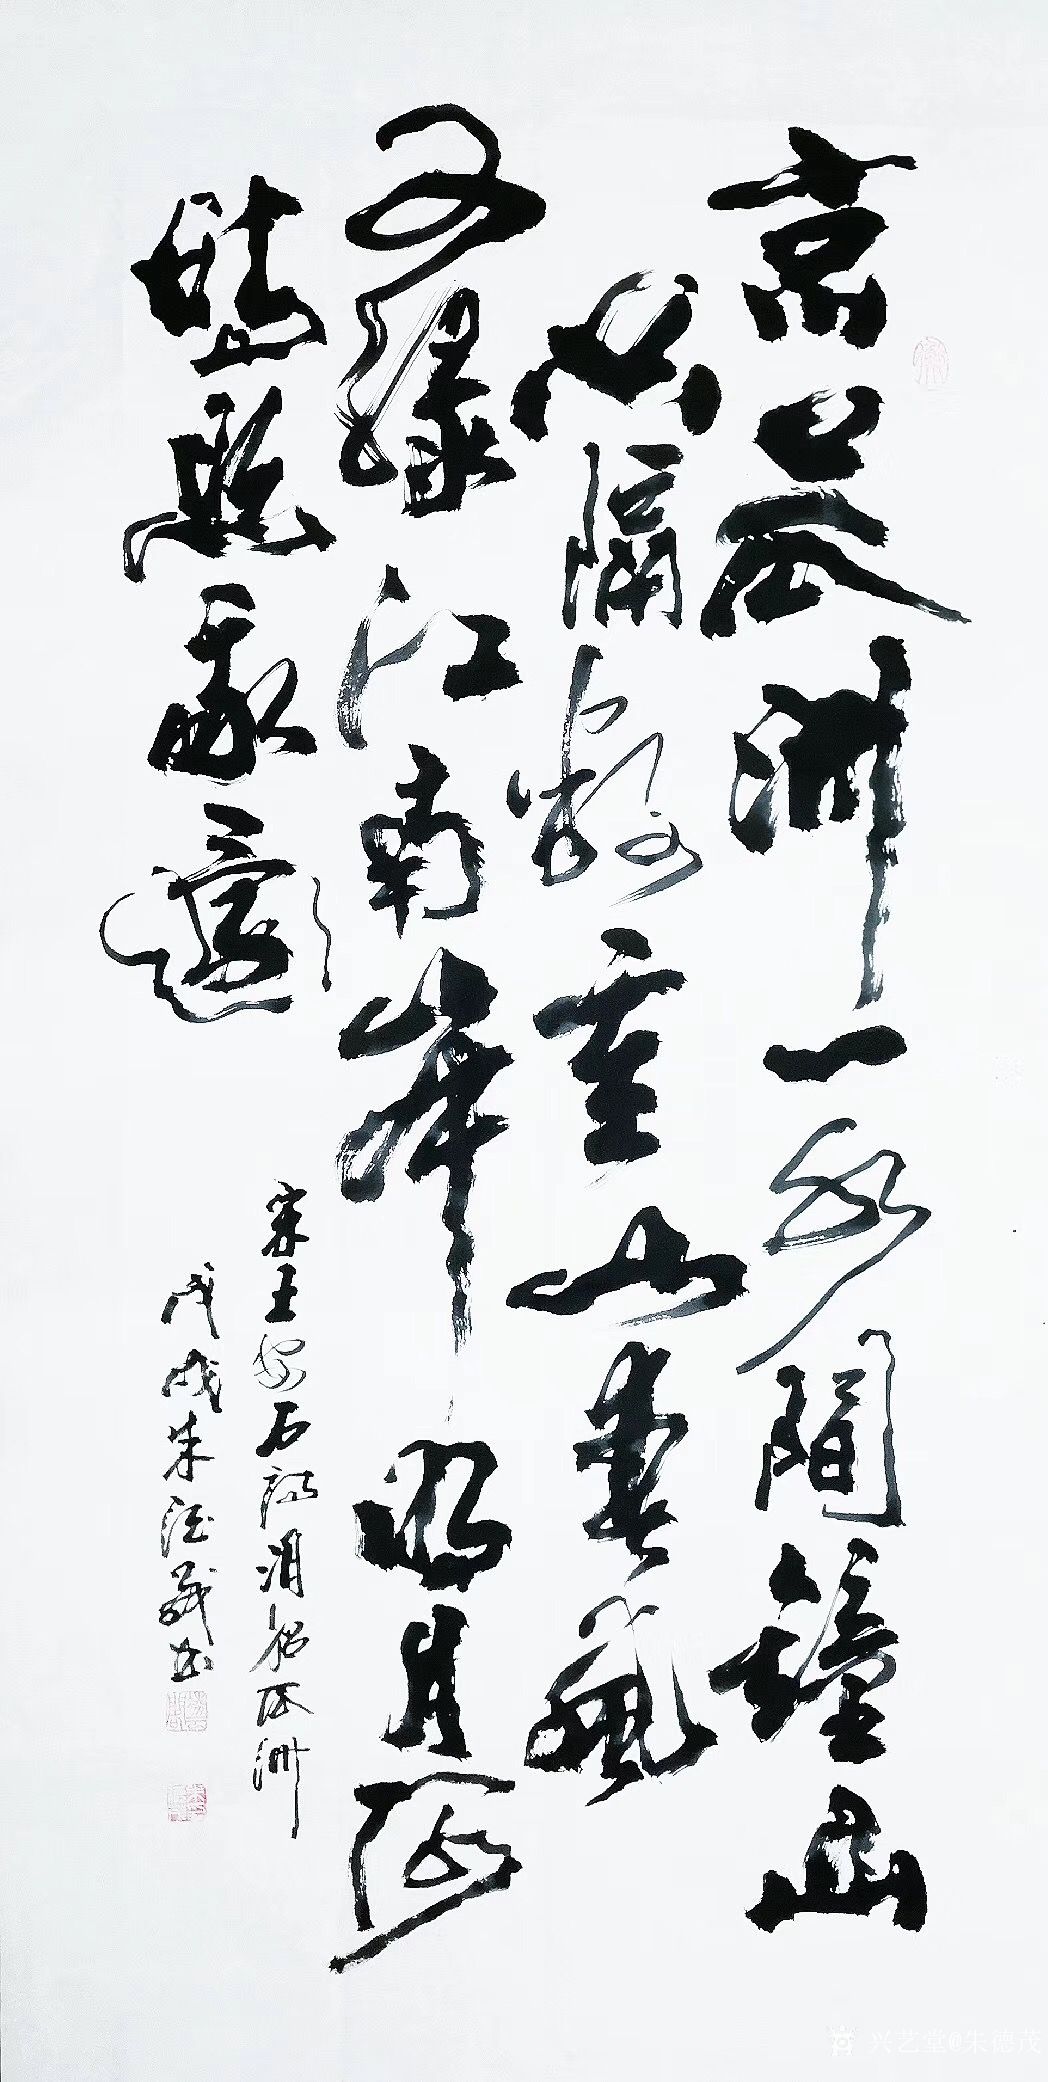 京口瓜洲一水間鐘山
只隔數重山春風
又綠江南岸明月何
時照我還
宋王安石詩泊船瓜洲
戊戌朱德茂书
兴艺堂@朱德茂